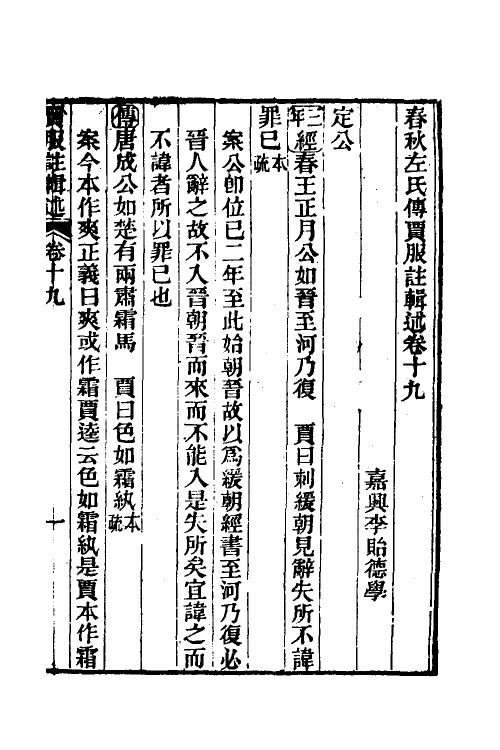 春秋左氏傳賈服註輯述卷十九
嘉興李貽德學
定公
三年經春王正月公如晉至河乃復　賈曰刺緩朝見辭失所不諱
罪已本疏
案公卽位已二年至此始朝晉故以爲緩朝經書至河乃復必
晉人辭之故不入晉朝晉而來而不能入是失所矣宜諱之而
不諱者所以罪已也
傳唐成公如楚有兩肅霜馬　賈曰色如霜紈本疏
案今本作爽正義曰爽或作霜賈逵云色如霜紈是賈本作霜
賈服註輯述　卷十九　一